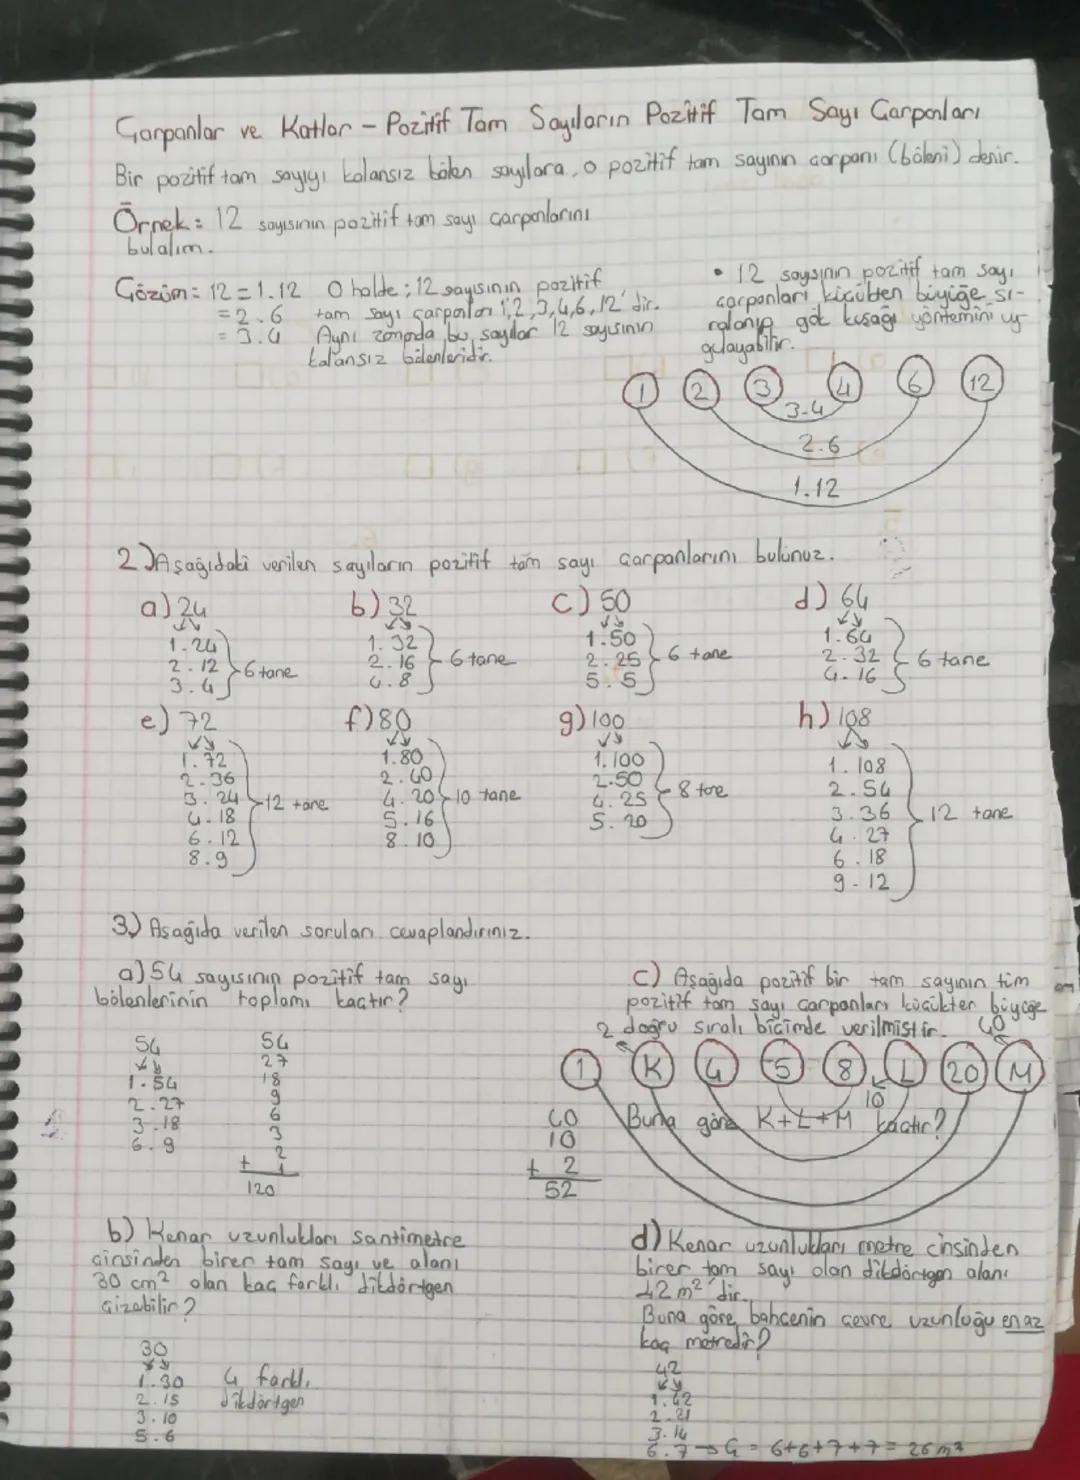 Çarpanlar ve Katlar - Pozitif Tam Sayıların Pozitif Tam Sayı Çarpanları
Bir pozitif tam sayıyı kalansız bölen sayılara, o pozitif tam sayının çarpanı (böleni) denir.
Örnek: 12 sayısının pozitif tam sayı çarpanlarını
bulalım.
Çözüm: 12 = 1.12 O halde; 12 sayısının pozitif
= 2.6 tam sayı çarpanları 1,2,3,4,6,12'dir.
= 3.4 Aynı zamanda bu sayılar 12 sayısının
kalansız bölenleridir.
• 12 sayısının pozitif tam sayı
çarpanları küçükten büyüğe sı-
ralanıp gök kuşağı yöntemini uy
gulayabilir.
1 2 3 4 6 12
3.4
2.6
1.12
2) Aşağıdaki verilen sayıların pozitif tam sayı çarpanlarını bulunuz.
a) 24
1.24
2.12
3.4
6 tane
b) 32
1.32
2.16
4.8
6 tane
c) 50
1.50
2.25
5.5
6 tane
d) 64
1.64
2.32
4.16
6 tane
e) 72
1.72
2.36
3.24
4.18
6.12
8.9
12 tane
f) 80
1.80
2.40
4.20
5.16
8.10
10 tane
g) 100
1.100
2.50
4.25
5.20
8 tane
h) 108
1.108
2.54
3.36
4.27
6.18
9.12
12 tane
3) Aşağıda verilen soruları cevaplandırınız.
a) 54 sayısının pozitif tam sayı
bölenlerinin toplamı kaçtır?
54
1.54
2.27
3.18
6.9
54
27
18
9
6
3
2
+ 1
120
c) Aşağıda pozitif bir tam sayının tüm
pozitif tam sayı çarpanları küçükten büyüğe
doğru sıralı biçimde verilmiştir.
2 40
1 K 4 5 8 L 20 M
10
Buna göre K+L+M kaçtır?
40
10
+ 2
52
b) Kenar uzunlukları santimetre
cinsinden birer tam sayı ve alanı
30 cm² olan kaç farklı dikdörtgen
çizebilir?
30
1.30
2.15
3.10
5.6
4 farklı
dikdörtgen
d) Kenar uzunlukları metre cinsinden
birer tam sayı olan dikdörtgen alanı
42 m²'dir.
Buna göre, bahçenin çevre uzunluğu en az
kaç metredir?
42
1.42
2.21
3.14
6.7 → Ç = 6+6+7+7 = 26 m²